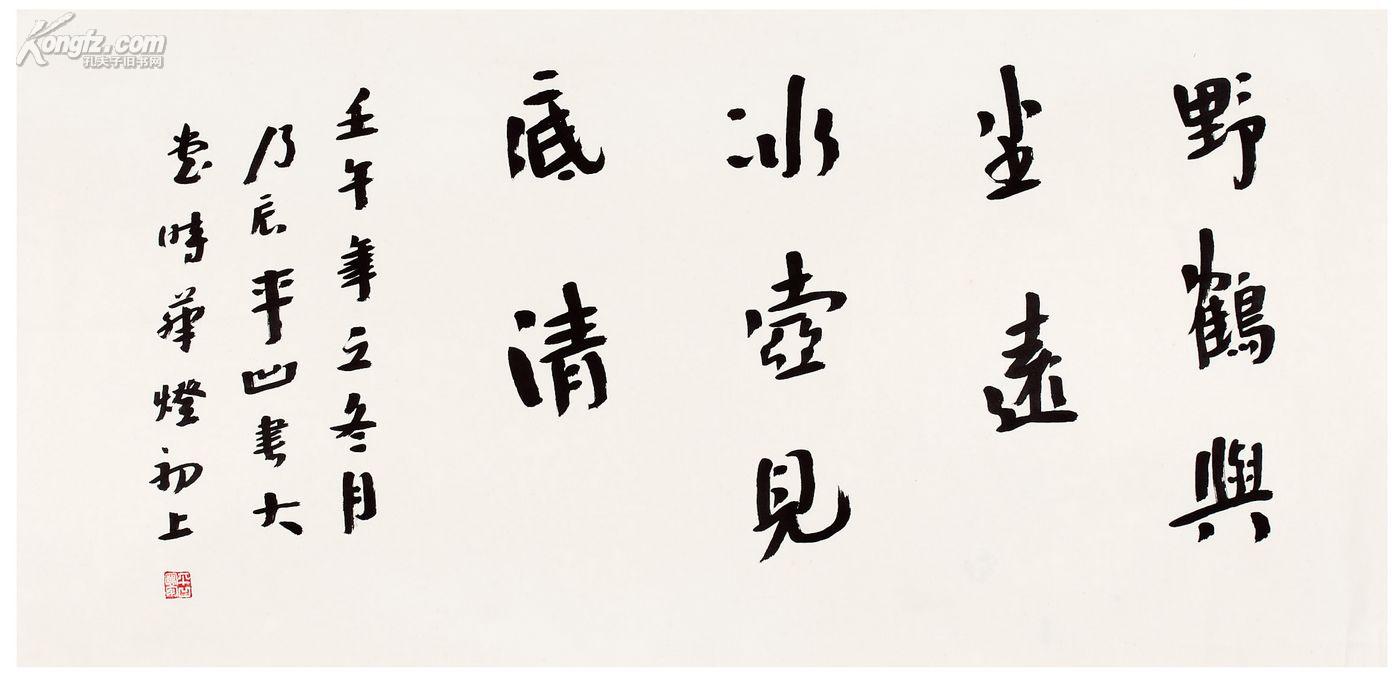 Kongfz.com
孔夫子旧书网
野鶴與
尘遠
冰壺見
底清
壬午年立冬月
乃辰平凹書大
堂時華燈初上